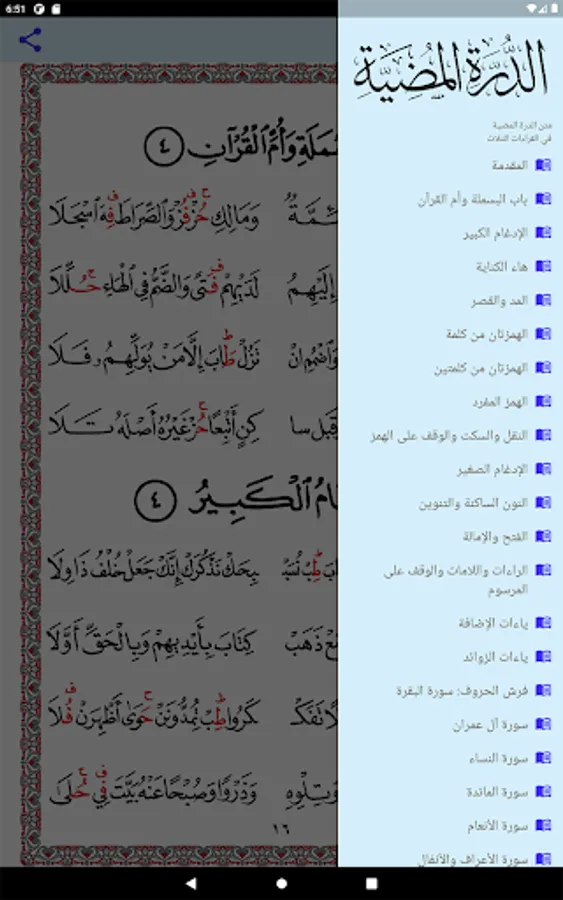 6:51
الدُّرَّةِ المُضِيَّةِ
متن الدرة المضيية
في القراءات الثلاث
المقدمة
باب البسملة وأم القرآن
الإدغام الكبير
هاء الكناية
المد والقصر
الهمزتان من كلمة
الهمزتان من كلمتين
الهمز المفرد
النقل والسكت والوقف على الهمز
الإدغام الصغير
النون الساكنة والتنوين
الفتح والإمالة
الراءات واللامات والوقف على
المرسوم
ياءات الإضافة
ياءات الزوائد
فرش الحروف: سورة البقرة
سورة آل عمران
سورة النساء
سورة المائدة
سورة الأنعام
سورة الأعراف والأنفال
وَأُمِّ الْقُرْآنِ ٤
وَمَالِكِ حُزْ فُزْ وَالصِّرَاطَ فِهَ اسْجَلَا
إِلَيْهِمُ لَدَيْهِمْ فَتًى وَالضَّمُّ فِي الْهَاءِ حُلِّلَا
تَزُلْ طَابَ إِلَّا مَنْ يُوَلِّهِمُ فَلَا
قَبْلَ سَا كِنٍ أَتْبِعًا حُزْ غَيْرُهُ أَصْلَهُ تَلَا
الْكَبِيرُ ٤
بِحَكْ نَذْكُرَكْ إِنَّكْ جَعَلْ خُلْفُ ذَا وِلَا
ذَهَبْ كِتَابَ بِأَيْدِيهِمْ وَبِالْحَقِّ أَوَّلَا
تَفَكْ كَرُوا طِبْ تُمِدُّونَنْ حَوَى أَظْهِرَنْ فُلَا
وَتِلْوِهِ وَذَرْوًا وَصُبْحًا عَنْهُ بَيَّتَ فِي حُلَى
١٦